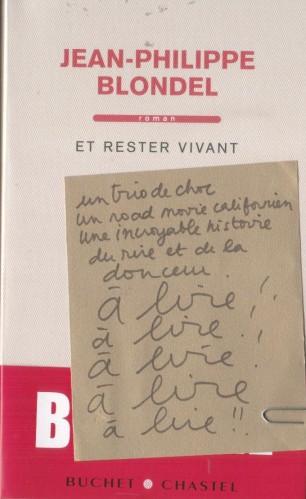 JEAN-PHILIPPE
BLONDEL
roman
ET REST​ER VIVANT
un trio de choc
un road movie californien
une incroyable histoire
du rire et de la
douceur.
à lire !
à lire !
à lire.
à lire
à lire !!
B
BUCHET CHASTEL